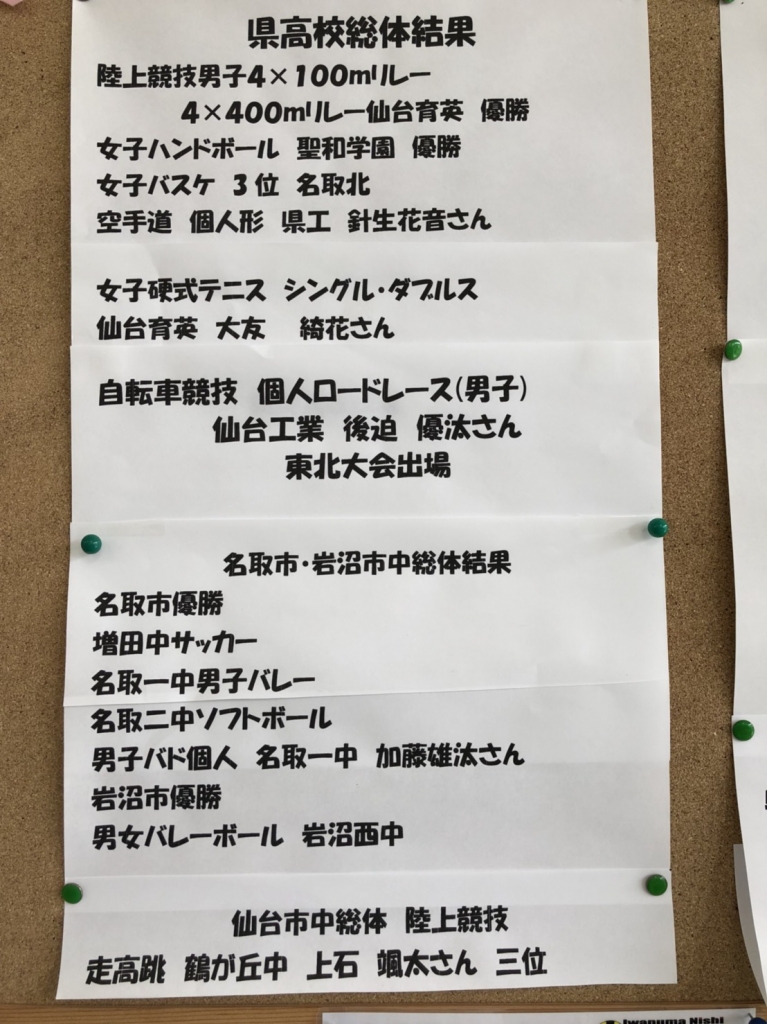 県高校総体結果
陸上競技男子4×100mリレー
4×400mリレー仙台育英 優勝
女子ハンドボール 聖和学園 優勝
女子バスケ 3位 名取北
空手道 個人形 県工 針生花音さん
女子硬式テニス シングル・ダブルス
仙台育英 大友 綺花さん
自転車競技 個人ロードレース(男子)
仙台工業 後迫 優汰さん
東北大会出場
名取市・岩沼市中総体結果
名取市優勝
増田中サッカー
名取一中男子バレー
名取二中ソフトボール
男子バド個人 名取一中 加藤雄汰さん
岩沼市優勝
男女バレーボール 岩沼西中
仙台市中総体 陸上競技
走高跳 鶴が丘中 上石 颯太さん 三位
Iwanuma Nishi